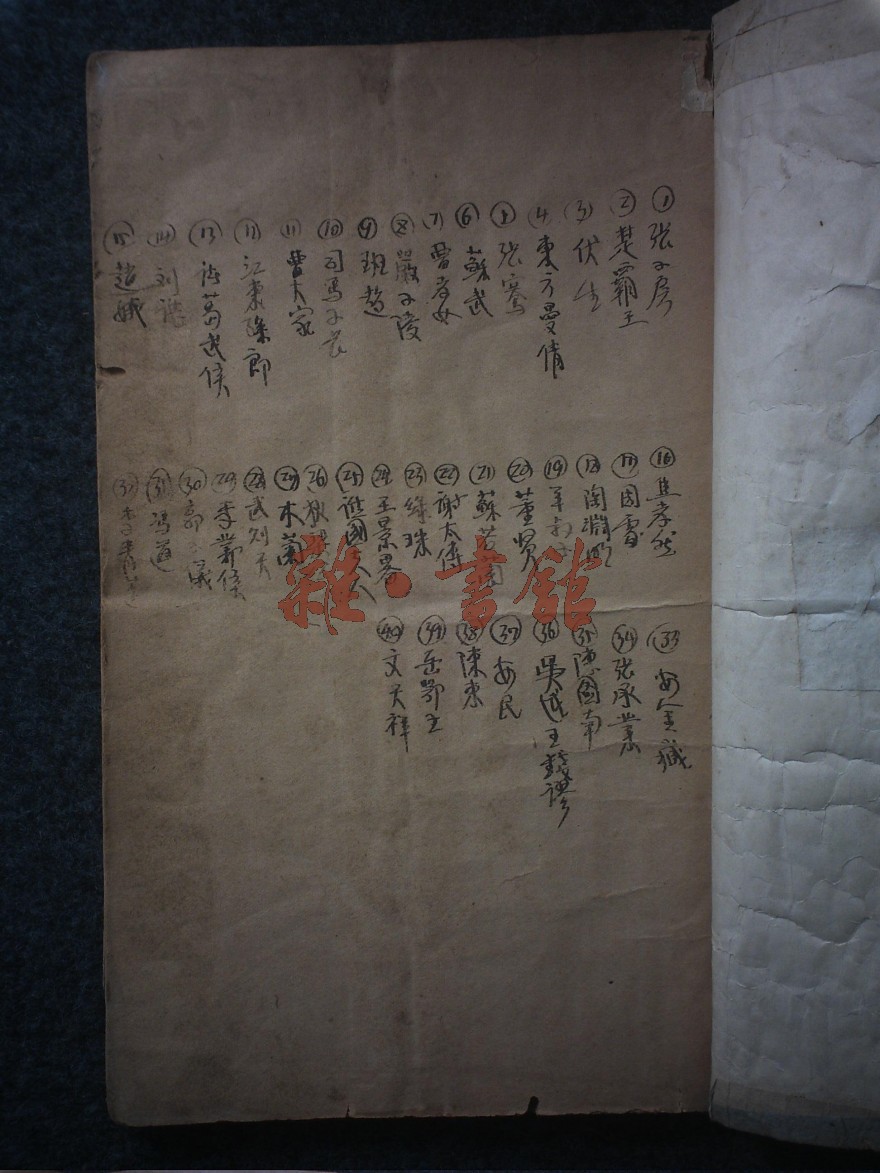 ① 张子房
② 楚霸王
③ 伏生
④ 東方曼倩
⑤ 张骞
⑥ 蘇武
⑦ 曹孝女
⑧ 嚴子陵
⑨ 班超
⑩ 司馬子长
⑪ 曹大家
⑫ 江東孫郎
⑬ 諸葛武侯
⑭ 刘諶
⑮ 趙娥
⑯ 焦孝然
⑰ 周處
⑱ 陶淵明
⑲ 羊
⑳ 董贤
㉑ 蘇若蘭
㉒ 謝太傅
㉓ 绿珠
㉔ 王景畧
㉕ 譙國夫人
㉖ 狄梁
㉗ 木蘭
㉘ 武则天
㉙ 李鄴侯
㉚ 郭
㉛ 馮道
㉜ 李青蓮
㉝ 安金藏
㉞ 张承業
㉟ 陳圖南
㊱ 吳越王錢鏐
㊲ 安民
㊳ 陳東
㊴ 岳鄂王
㊵ 文天祥
雜·書館